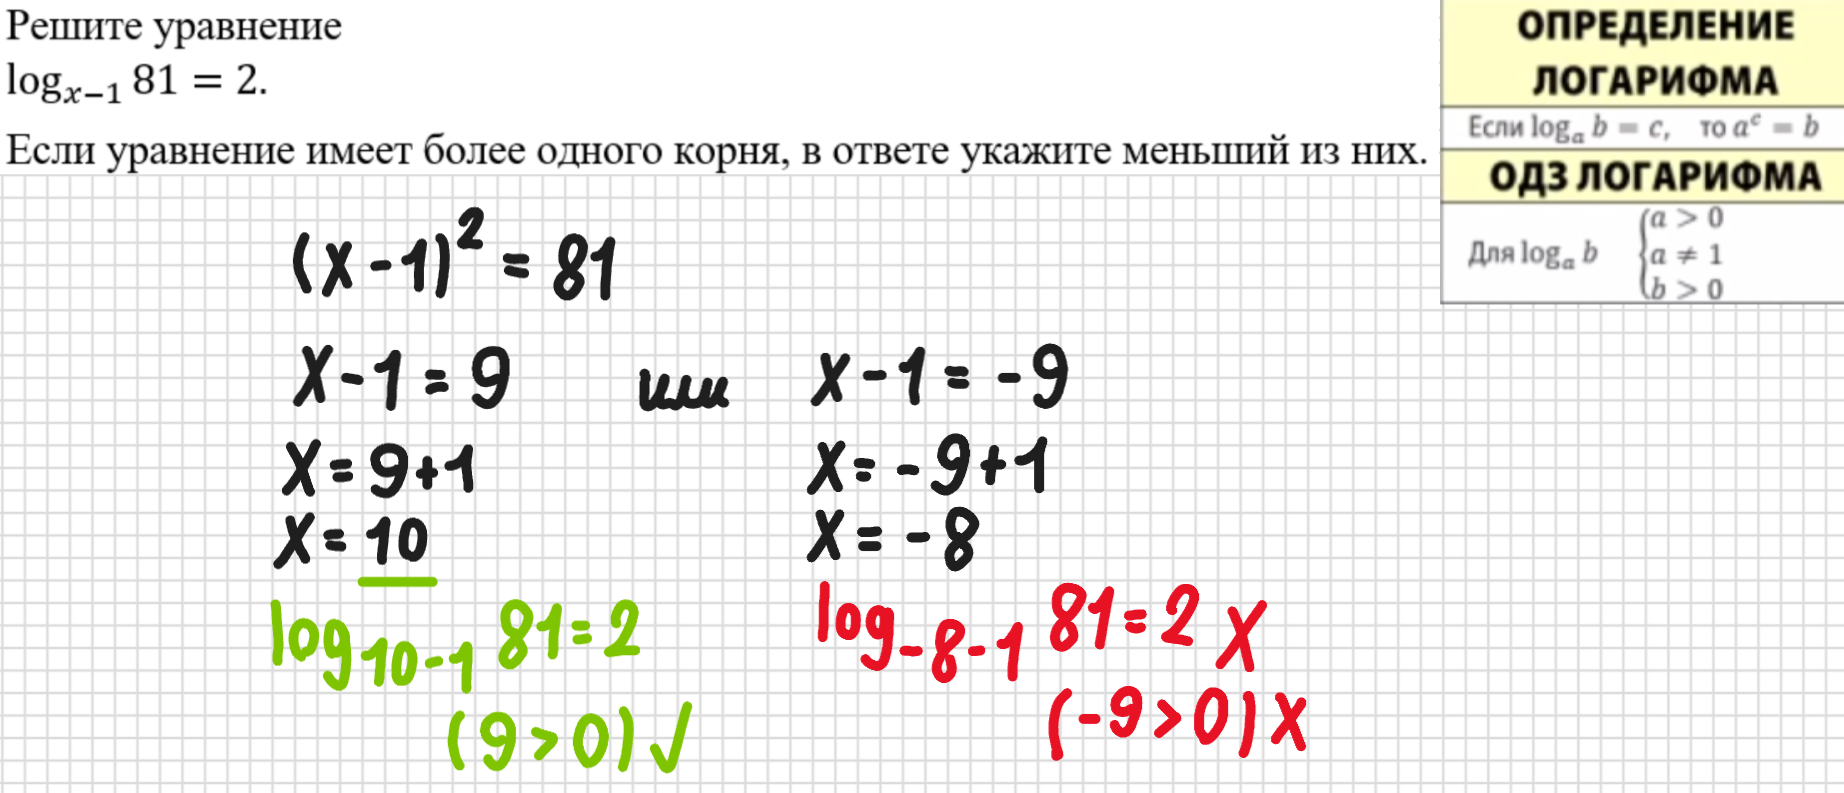 Решите уравнение
logₓ₋₁ 81 = 2.
Если уравнение имеет более одного корня, в ответе укажите меньший из них.
ОПРЕДЕЛЕНИЕ
ЛОГАРИФМА
Если logₐ b = c, то aᶜ = b
ОДЗ ЛОГАРИФМА
Для logₐ b
a > 0
a ≠ 1
b > 0
(x-1)² = 81
x-1=9 или x-1=-9
x=9+1 x=-9+1
x=10 x=-8
log₁₀₋₁ 81=2 log₋₈₋₁ 81=2 X
(9>0) √ (-9>0) X